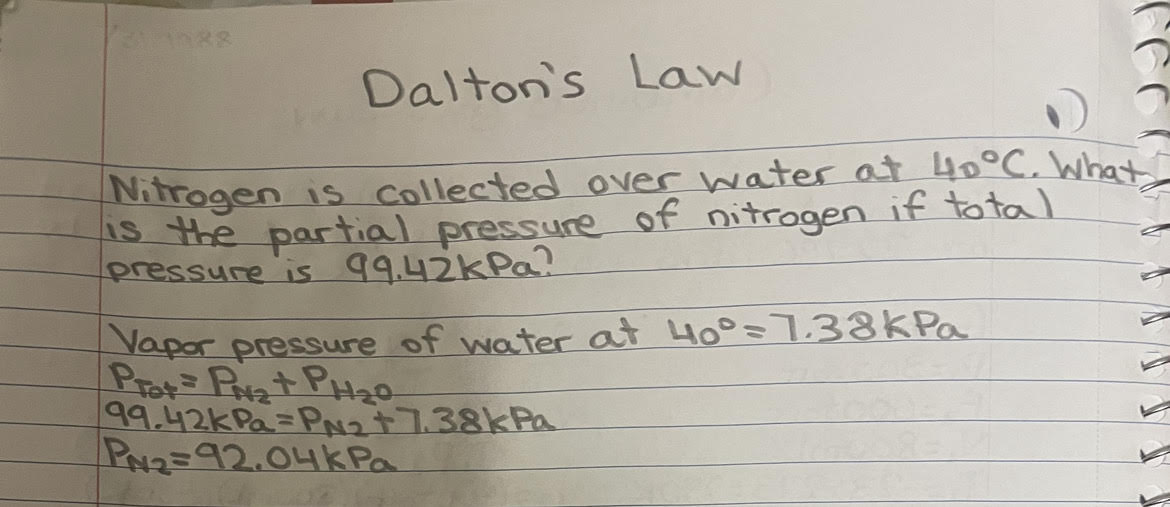 Dalton's Law
Nitrogen is collected over water at 40°C. What
is the partial pressure of nitrogen if total
pressure is 99.42kPa?
Vapor pressure of water at 40°=7.38kPa
PTot=PN2+PH2O
99.42kPa=PN2+7.38kPa
PN2=92.04kPa